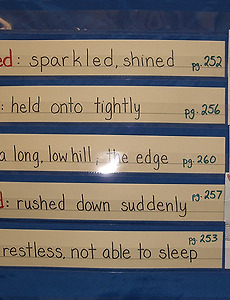 ed: sparkled, shined pg. 252
: held onto tightly pg. 256
a long, low hill; the edge pg. 260
d: rushed down suddenly pg. 257
restless, not able to sleep pg. 253